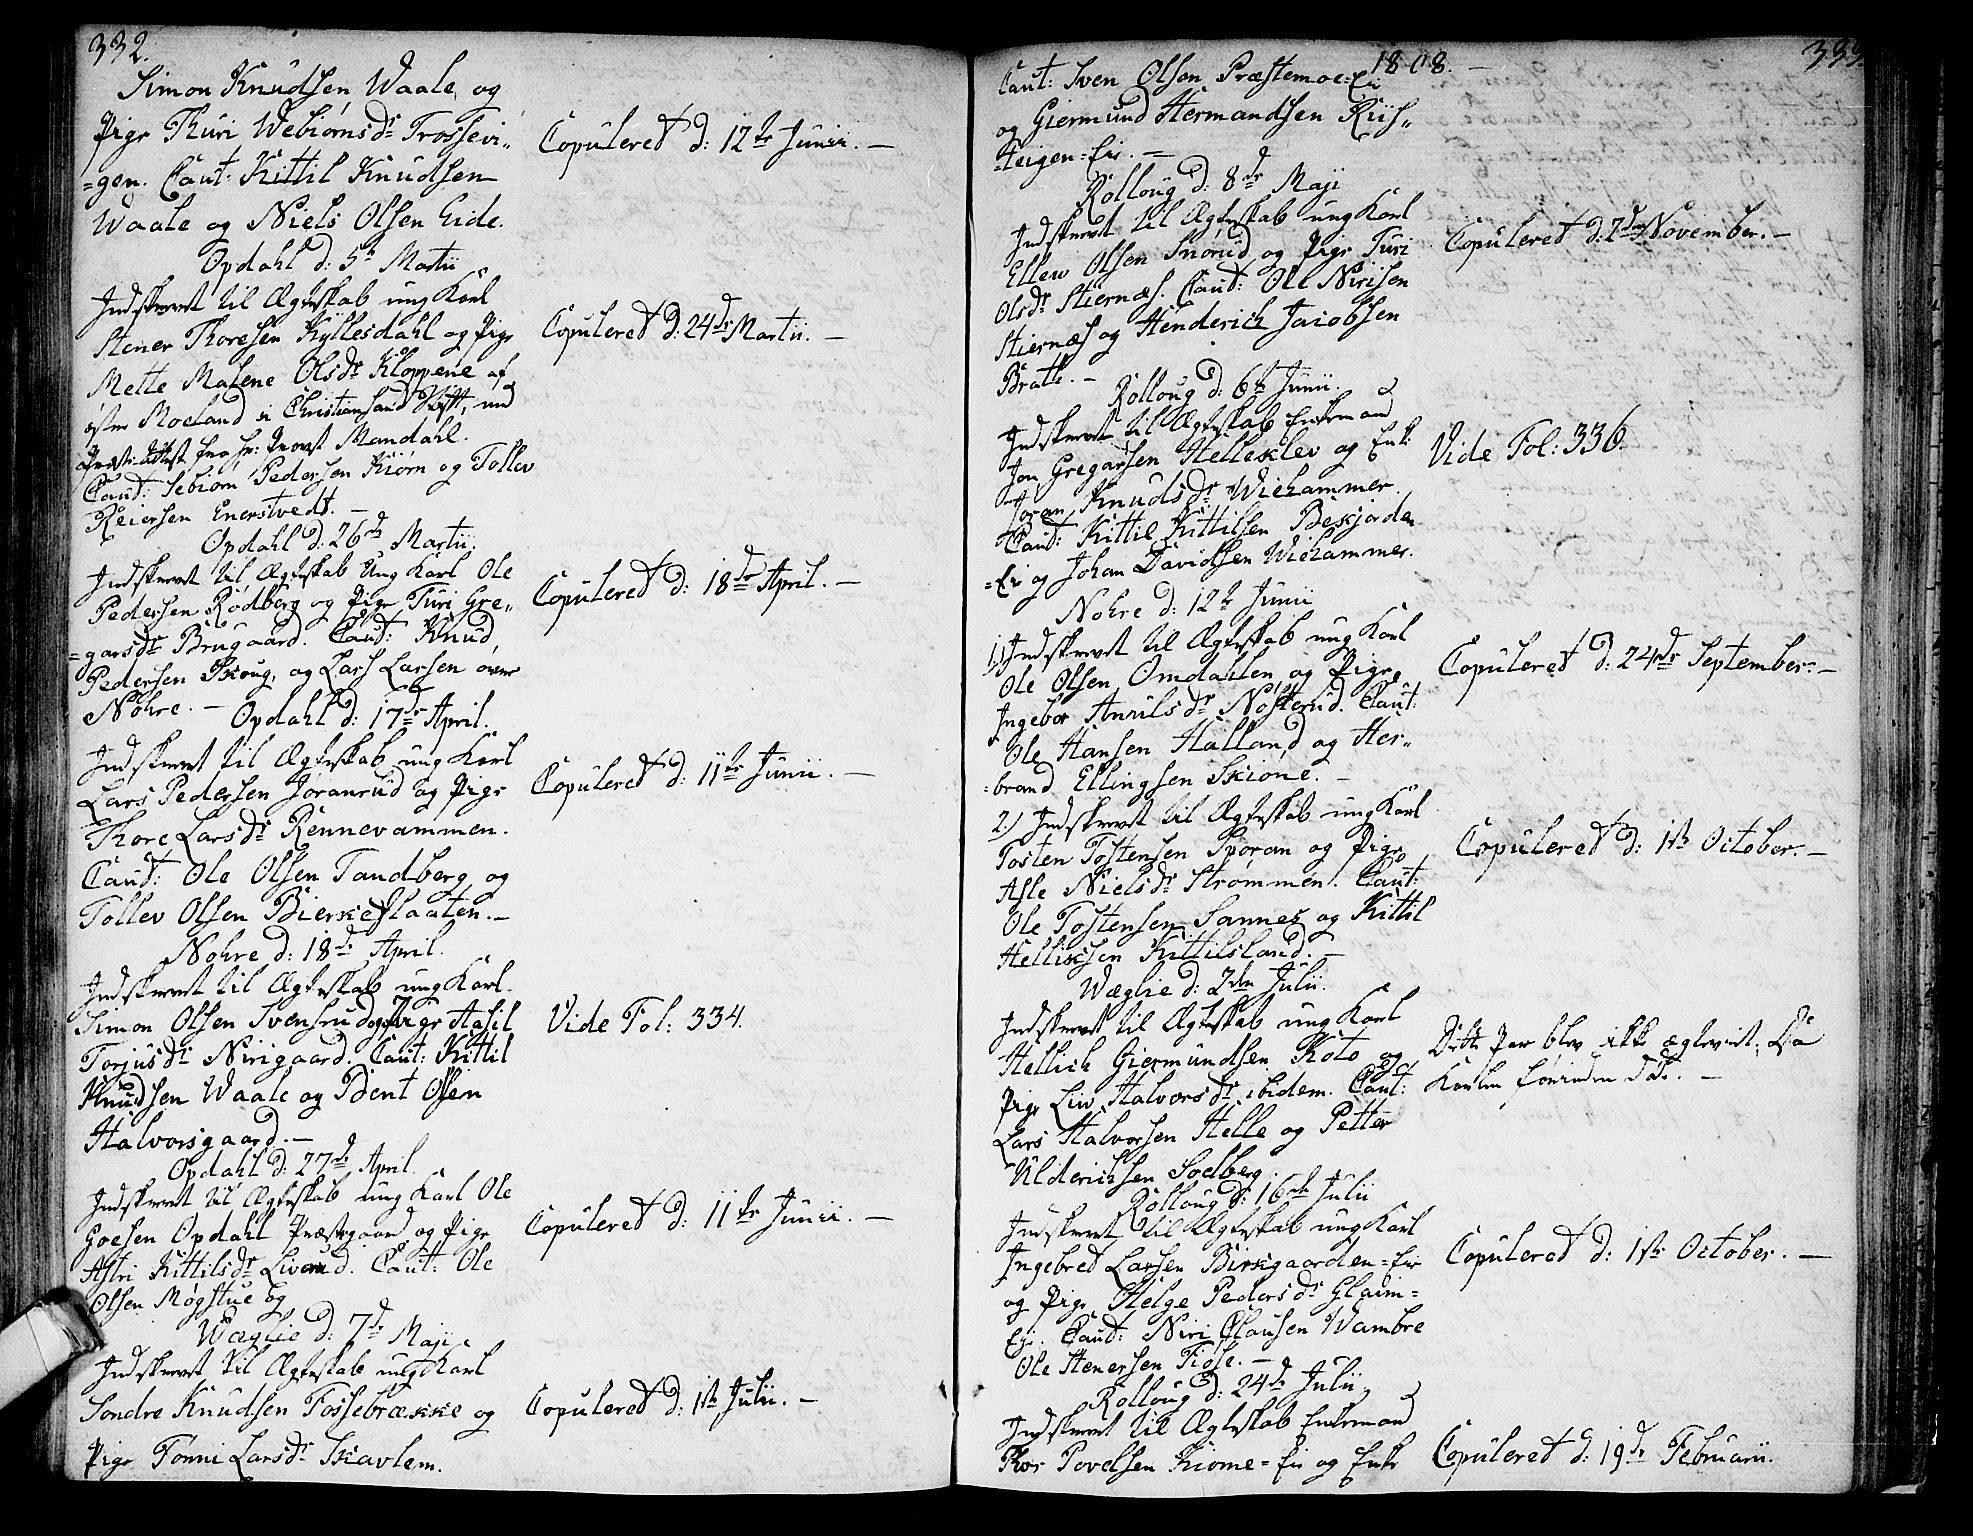 332.
Simon Knudsen Waale, og
Pige Thuri Webiørnsdr Trossevi„
=gen. Caut: Kittil Knudsen
Waale og Niels Olsen Eide.
Copuleret d: 12te Junii. —
Opdahl d: 5te Martii
Indskrevet til Ægteskab ung Karl
Stener Thoresen Kyllesdahl og Pige
Mette Malene Olsdr Kloppene af
øster Moeland i Christiansand Stift, med
Præste-Attest fra Hr: Provst Mandahl.
Caut: Sebiørn Pedersen Kiørn og Tollev
Reiersen Enerstvedt. —
Copuleret d: 24de Martii. —
Opdahl d: 26de Martii.
Indskrevet til Ægteskab Ung Karl Ole
Pedersen Rødberg og Pige Turi Gre„
=garsdr Brugaard. Caut: Knud
Pedersen Skoug, og Lars Larsen over
Nohre. —
Copuleret d: 18de April. —
Opdahl d: 17de April.
Indskrevet til Ægteskab ung Karl
Lars Pedersen Joranrud og Pige
Thore Larsdr Rennevammen.
Caut: Ole Olsen Tandberg og
Tollev Olsen Bierkeflaaten. —
Copuleret d: 11te Junii. —
Nohre d: 18de April.
Indskrevet til Ægteskab ung Karl
Simon Olsen Svensrud og Pige Aasil
Torjusdr Nirigaard. Caut: Kittil
Knudsen Waale og Bent Olsen
Halvorsgaard. —
Vide Fol: 334.
Opdahl d: 27de April.
Indskrevet til Ægteskab ung Karl Ole
Goesen Opdahl Præstegaard og Pige
Astri Kittilsdr Liverud. Caut: Ole
Olsen Møgstue og
Copuleret d: 11te Junii. —
Wæglie d: 7de Maji
Indskrevet til Ægteskab ung Karl
Sondre Knudsen Fossebrække og
Pige Tonni Larsdr Skavlem.
Copuleret d: 1ste Julii. —
1808. —
333
Caut: Sven Olson Præstemoe=Eie
og Giermund Hermandsen Riis„
=teigen=Eie. —
Rolloug d: 8de Maji
Indskrevet til Ægteskab ung Karl
Ellew Olsen Snorud og Pige Turi
Olsdr Stiernæs. Caut: Ole Nirisen
Stiernæs og Henderich Jacobsen
Bratli. —
Copuleret d: 2den November. —
Rolloug d: 6te Junii.
Indskrevet til Ægteskab Enkemand
Jon Gregarsen Helleklev og Enke
Joran Knudsdr Wiehammer.
Caut: Kittil Kittilsen Bekjorden
=Eie og Johan Davidsen Wiehammer.
Vide Fol: 336.
Nohre d: 12te Junii
1.) Indskrevet til Ægteskab ung Karl
Ole Olsen Omdahlen og Pige
Ingebor Anrilsdr Nosterud. Caut:
Ole Hansen Halland og Her„
=brand Ellingsen Skione. —
Copuleret d: 24de September. —
2.) Indskrevet til Ægteskab ung Karl
Tosten Tostensen Sporan og Pige
Asle Nielsdr Strømmen. Caut:
Ole Tostensen Sannes og Kittil
Hellicsen Kittilsland. —
Copuleret d: 1ste October. —
Wæglie d: 2den Julii.
Indskrevet til Ægteskab ung Karl
Hellich Giermundsen Koto og
Pige Liv Halvorsdr ibidem. Caut:
Lars Halvorsen Helle og Petter
Ulderichsen Soelberg.
Dette Par blev ikke ægteviet, Da
Karlen forinden døde. —
Rolloug d: 16de Julii
Indskrevet til Ægteskab ung Karl
Ingebret Larsen Birkgaarden=Eie
og Pige Helge Pedersdr Glaim=
Eie. Caut: Niri Clausen Wambre
Ole Stenersen Fiose. —
Copuleret d: 1ste October. —
Rolloug d: 24de Julii
Indskrevet til Ægteskab Enkemand
Thor Povelsen Kiome=Eie og Enke
Copuleret d: 19de Februarii.